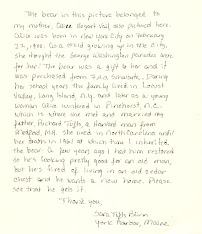 The bear in this picture belonged to
my mother, Alice Vail, also pictured here.
Alice was born in New York City on February
22, 1900. As a child growing up in the City,
she thought the George Washington Parades were
for her! The bear was a gift to her and it
was purchased from F.A.O. Schwartz. During
her school years the family lived in Locust
Valley, Long Island, N.Y. and later as a young
woman Alice wintered in Pinehurst, N.C.
which is where she met and married my
father, Richard Tufts, a Harvard man from
Medford, MA. She lived in North Carolina until
her death in when I inherited
the bear. A few years ago I had him restored
so he's looking pretty good for an old man,
but he's tired of living in an old cedar
chest and he wants a new home. Please
see that he gets it.
Thank you,
Sara Tufts
York Harbor, Maine